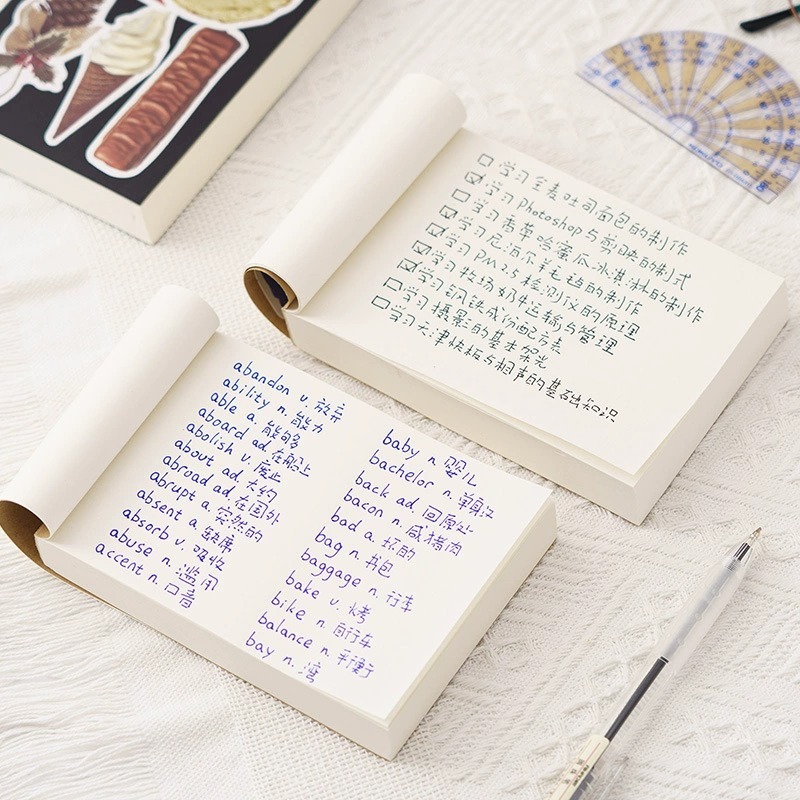 ☐ 学习全麦吐司面包的制作
☑ 学习Photoshop与剪映的制式
☐ 学习香草哈蜜瓜冰淇淋的制作
☑ 学习尼泊尔羊毛毯的制作
☑ 学习PM2.5检测仪的原理
☑ 学习牧场奶牛运输与管理
☑ 学习钢铁成份配方表
☐ 学习摄影的基本架光
☐ 学习天津快板与相声的基础知识
abandon v. 放弃
ability n. 能力
able a. 能够
aboard ad. 在船上
abolish v. 废止
about ad. 大约
abroad ad. 在国外
abrupt a. 突然的
absent a. 缺席
absorb v. 吸收
abuse n. 滥用
accent n. 口音
baby n. 婴儿
bachelor n. 单身汉
back ad. 回原处
bacon n. 咸猪肉
bad a. 坏的
bag n. 书包
baggage n. 行车
bake v. 烤
bike n. 自行车
balance n. 平衡
bay n. 湾